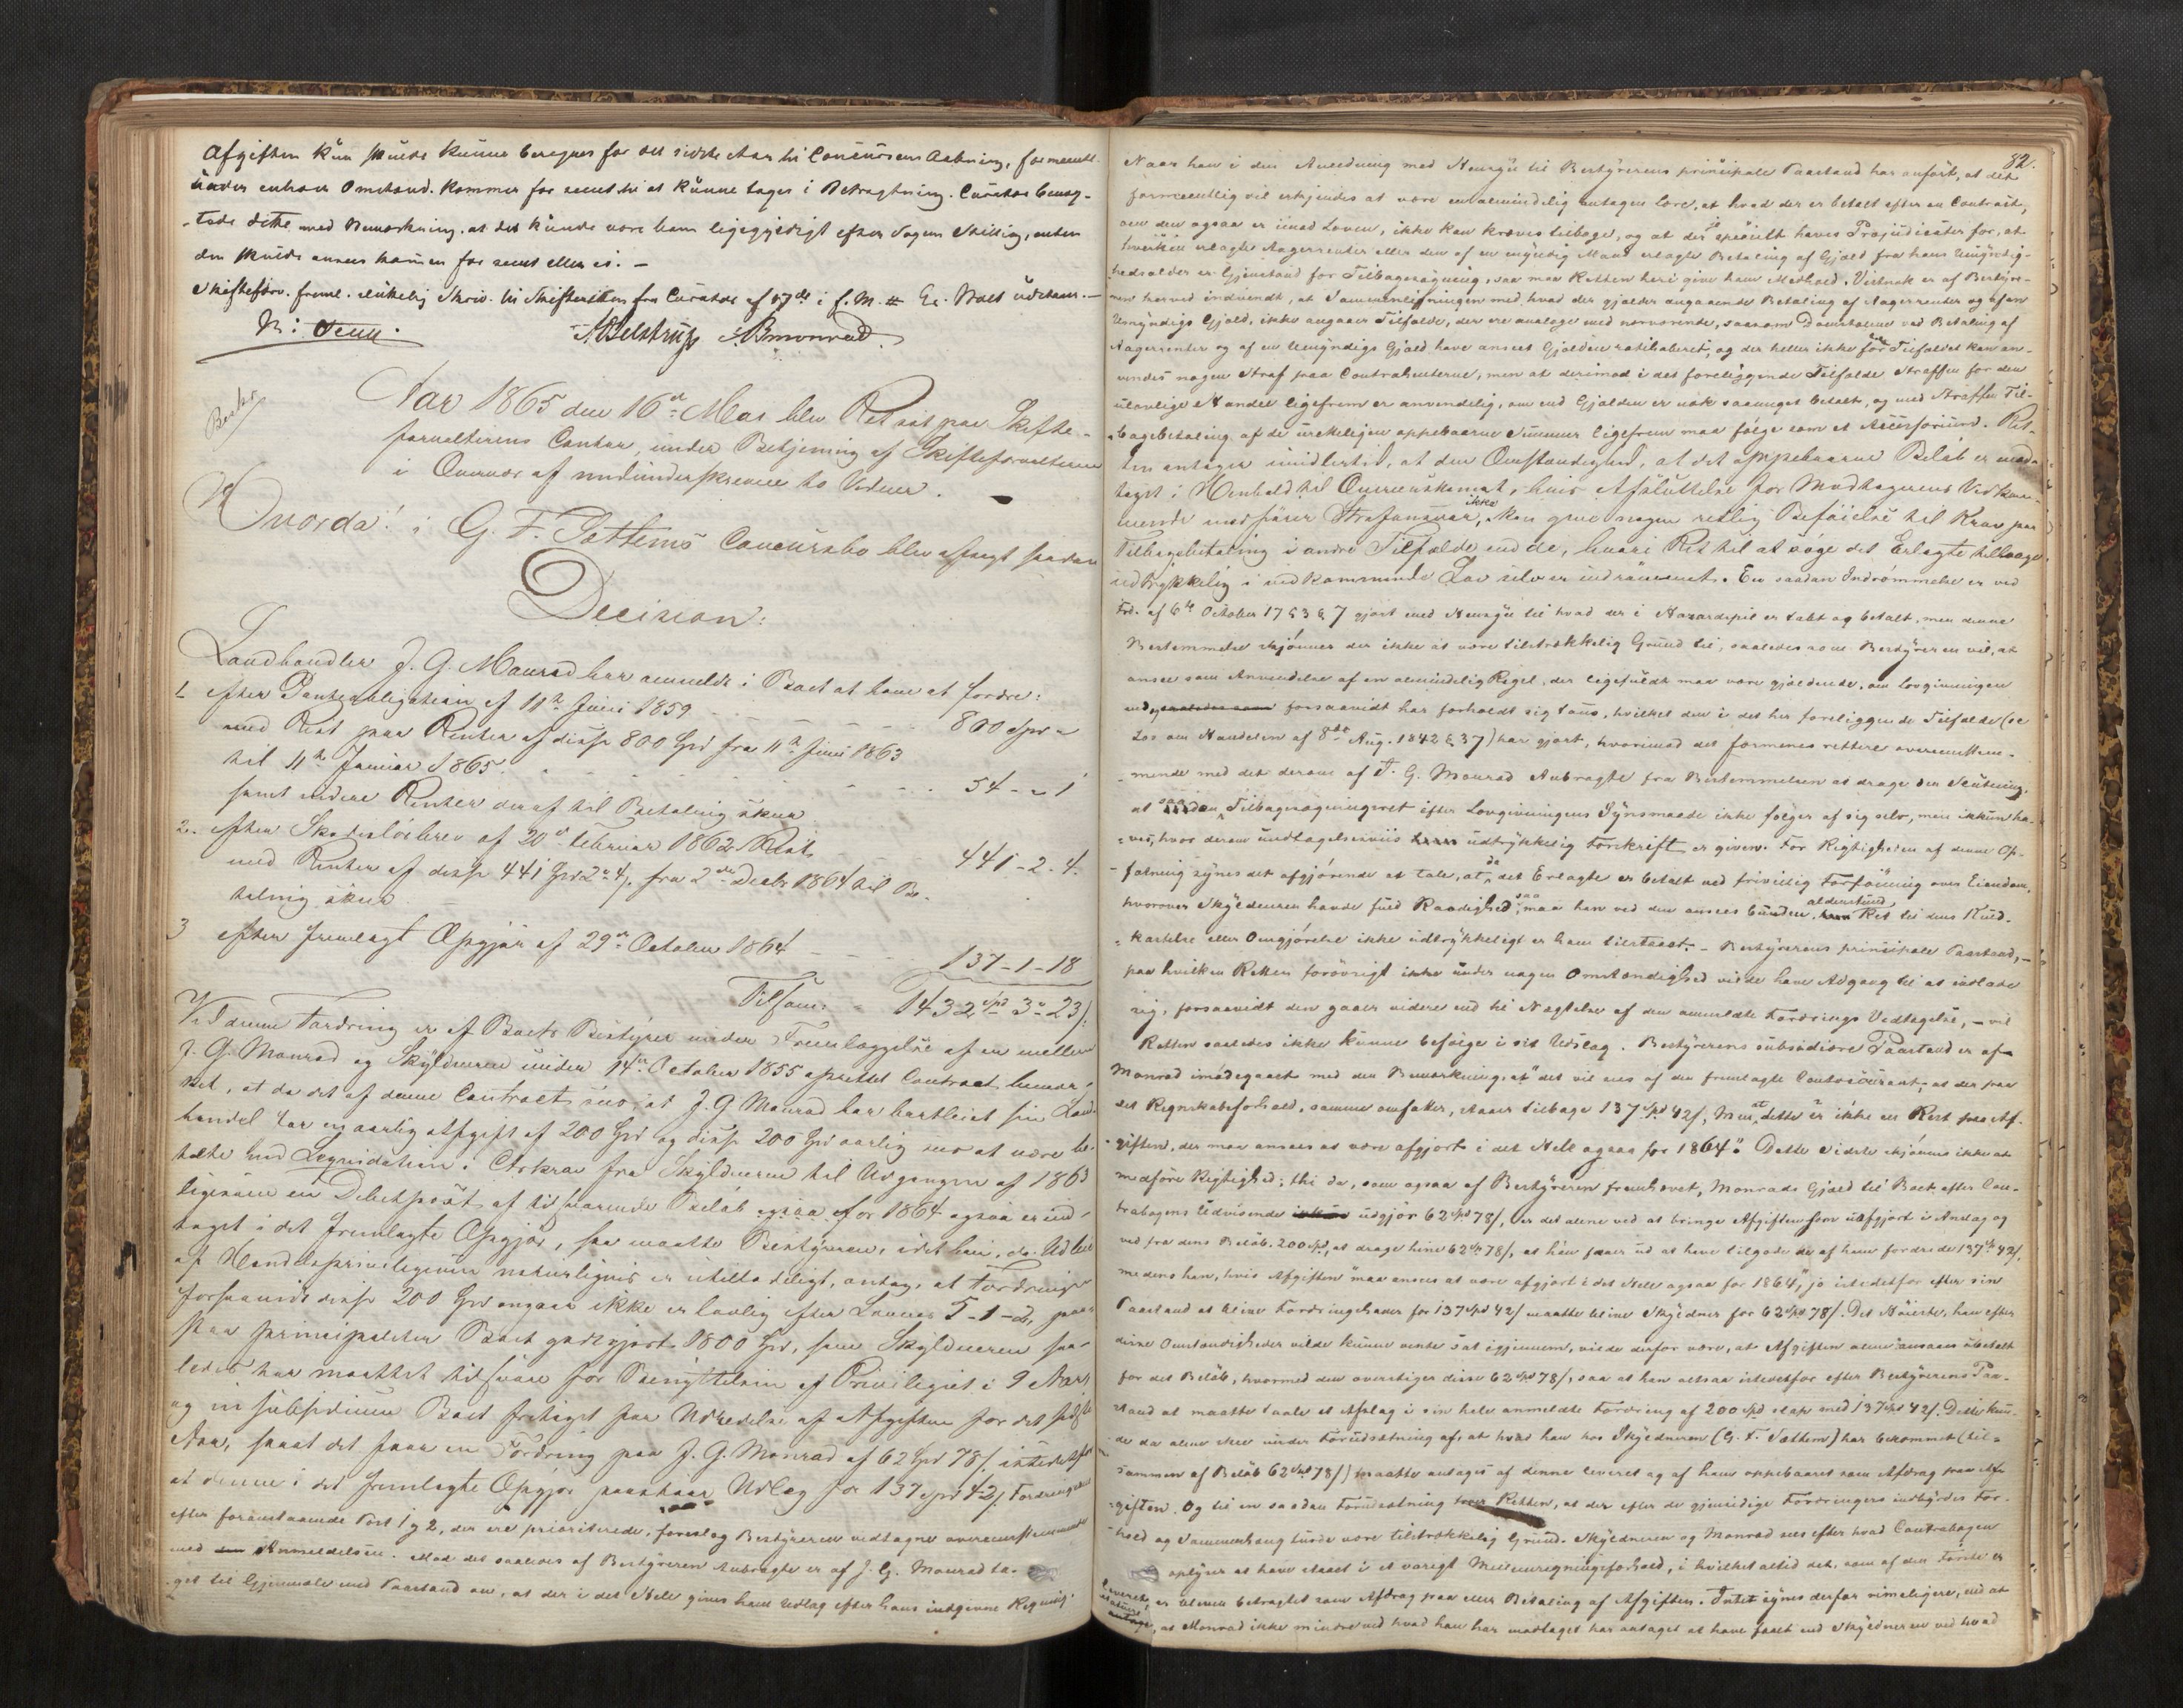 Afgiften kun skulde kunne beregnes for det sidste Aar til Concursens Aabning, formentl.
under enhver Omstænd. kommer for seent til at kunne tages i Betragtning. Curator benæg-
tede dette med Bemærkning, at det kunde være ham ligegyldigt efter Sagens Stilling, enten
den skulde ansees kommen for seent eller ei. –
Skifteforv. freml. skriv. til Skifteretten fra Curator af 17de i f. M.
A Belstrup A Bmonrad
Beskr
Aar 1865 den 16de Mai blev Ret sat paa Skifte-
forvalterens Contor, under Betjening af Skifteforvalteren
i Overvær af medunderskrevne to Vidner.
Hvorda! i G. F. Sættems Concursbo blev afsagt saadan
Decision:
Landhandler J. G. Monrad har anmeldt i Boet at have at fordre:
1. efter Panteobligation af 11te Juni 1859 – – – – 800 Spd
med Rest paa Renter af disse 800 Spd fra 11te Juni 1863
til 11te Januar 1865. – – – – 54 – " 1
samt videre Renter deraf til Betaling skeer
2. efter Skadesløsbrev af 20de Februar 1862 Rest 441 – 2 . 4.
med Renter af disse 441 Spd 2 4/, fra 2den Decbr 1864 til Be-
taling skeer
3 efter fremlagt Opgjør af 29de October 1864 – – – 137 – 1 – 18
Tilsam: 1432 Spd 3 23/.
Ved denne Fordring er af Boets Bestyrer under Fremlæggelse af en mellem
J. G. Monrad og Skyldneren under 14de October 1855 oprettet Contract bemær-
ket, at da det af denne Contract sees, at J. G Monrad har bortleiet sin Land-
handel for en aarlig Afgift af 200 Spd og disse 200 Spd aarlig sees at være be-
talte ved Leqvidation i Krav fra Skyldneren til Udgangen af 1863
ligesom en Debetpost af tilsvarende Beløb ogsaa for 1864 ogsaa er ind-
taget i det fremlagte Opgjør, saa maatte Bestyreren, idet han, da Udleie
af Handelsprivilegium naturligviis er utilladeligt, antog, at Fordringen
forsaavidt disse 200 Spd angaaer ikke er lovlig efter Lovens 5–1–2, paa-
staa principaliter Boet godtgjort 1800 Spd, som Skyldneren saa-
ledes har maattet tilsvare for Benyttelsen af Privilegiet i 9 Aar,
og in subsidium Boet fritaget for Udredelse af Afgiften for det sidste
Aar, samt det faaer en Fordring paa J. G. Monrad af 62 Spd 78/. istedetfor
at denne i det fremlagte Opgjør paastaaer Udlæg for 137 Spd 42/. Fordringerne
efter foranstaaende Post 1 og 2, der ere prioriterede, foreslog Bestyreren vedtagne overensstemmende
med Anmeldelsen. Mod det saaledes af Bestyreren Anbragte er af J. G. Monrad ta-
get til Gjenmæle med Paastand om, at der i det Hele gives ham Udlæg efter hans indgivne Regning.
82.
Naar han i den Anledning med Hensyn til Bestyrerens principale Paastand har anført, at det
formeentlig vil erkjendes at være en almindelig antagen Lære, at hvad der er betalt efter en Contract,
om den ogsaa er imod Loven, ikke kan kræves tilbage, og at der jo specielt haves Præjudicater for, at
hverken erlagte Aagerrenter eller den af en myndig Mand erlagte Betaling af Gjæld fra hans Umyndig-
hedsalder er Gjenstand for Tilbagesøgning, saa maa Retten heri give ham Medhold. Vistnok er af Bestyre-
ren herved indvendt, at Sammenligningen med, hvad der gjælder angaaende Betaling af Aagerrenter og af en
Umyndigs Gjæld, ikke angaaer Tilfælde, der ere analoge med nærværende, saasom Domstolene ved Betaling af
Aagerrenter og af en Umyndigs Gjæld have anseet Gjælden ratihaberet, og der heller ikke for Tilfældet kan an-
vendes nogen Straf paa Contrahenterne, men at derimod i det foreliggende Tilfælde Straffen for den
ulovlige Handel ligefrem er anvendelig, om end Gjælden er nok saameget betalt, og med Straffen Til-
bagebetaling af de urettelig oppebaarne Summer ligefrem maa følge som et Accessorium. Ret-
ten antager imidlertid, at den Omstændighed, at det oppebaarne Beløb er mod-
taget i Henhold til Overeenskomst, hvis Afsluttelse for Modtagerens Vedkom-
mende medfører Strafansvar, ikke kan give nogen retlig Beføielse til Krav paa
Tilbagebetaling i andre Tilfælde end de, hvori Ret til at søge det Erlagte tilbage
udtrykkelig i vedkommende Lov selv er indrømmet. En saadan Indrømmelse er ved
Frd. af 6te October 1753 § 7 gjort med Hensyn til hvad der i Hazardspil er tabt og betalt, men denne
Bestemmelse skjønnes der ikke at være tilstrækkelig Grund til, saaledes som Bestyreren vil, at
ansee som Anvendelse af en almindelig Regel, der ligefuldt maa være gjældende, om Lovgivningen
forsaavidt har forholdt sig taus, hvilket den i det her foreliggende Tilfælde (se
Lov om Handelen af 8de Aug. 1842 § 37) har gjort, hvorimod det formenes rettere overeensstem-
mende med det derom af J. G. Monrad Anbragte fra Bestemmelsen at drage den Slutning,
at saadan Tilbagesøgningsret efter Lovgivningens Synsmaade ikke følger af sig selv, men ikkun ha-
ves, hvor derom undtagelsesviis udtrykkelig Forskrift er given. For Rigtigheden af denne Op-
fatning synes det afgjørende at tale, at da det Erlagte er betalt ved frivillig Forføining over Eiendom,
hvorover Skyldneren havde fuld Raadighed, saa maa han ved den ansees bunden, aldenstund Ret til dens Kuld-
kastelse eller Omgjørelse ikke udtrykkeligt er ham tilstaaet. – Bestyrerens principale Paastand, –
paa hvilken Retten forøvrigt ikke under nogen Omstændighed vilde have Adgang til at indlade
sig, forsaavidt den gaaer videre end til Nægtelse af den anmeldte Fordrings Vedtagelse, – vil
Retten saaledes ikke kunne befølge i sit Udslag. Bestyrerens subsidiære Paastand er af
Monrad imødegaaet med den Bemærkning, at "det vil sees af den fremlagte Contocourant, at der paa
det Regnskabsforhold, samme omfatter, staaer tilbage 137 Spd 42/, Men at dette er ikke en Rest paa Af-
giften, der maa ansees at være afgjort i det Hele ogsaa for 1864". Dette Sidste skjønnes ikke at
medføre Rigtighed; thi da, som ogsaa af Bestyreren fremhævet, Monrads Gjæld til Boet efter Con-
trabogens Udvisende udgjør 62 Spd 78/, er det alene ved at bringe Afgiften som uafgjort i Anslag og
ved fra dens Beløb, 200 Spd, at drage hine 62 Spd 78/, at han faaer ud at have tilgode de af ham fordrede 137 Spd 42/,
medens han, hvis Afgiften "maa ansees at være afgjort i det Hele ogsaa for 1864", jo istedetfor efter sin
Paastand at blive Fordringshaver for 137 Spd 42/ maatte blive Skyldner for 62 Spd 78/. Det Høieste, han efter
disse Omstændigheder vilde kunne vente sat igjennem, vilde derfor være, at Afgiften alene ansaaes ubetalt
for det Beløb, hvormed den overstiger disse 62 Spd 78/, saa at han altsaa istedetfor efter Bestyrerens Paa-
stand at maatte taale et Afslag i sin hele anmeldte Fordring af 200 Spd slap med 137 Spd 42/. Dette kun-
de da alene skee under Forudsætning af, at hvad han hos Skyldneren (G. F. Sættem) har bekommet (til-
sammen af Beløb 62 Spd 78/) maatte antages af denne leveret og af ham oppebaaret som Afdrag paa Af-
giften. Og til en saadan Forudsætning troer Retten, at der efter de gjensidige Fordringers indbyrdes For-
hold og Sammenhæng turde være tilstrækkelig Grund. Skyldneren og Monrad sees efter hvad Contrabogen
oplyser at have staaet i et varigt Mellemregningsforhold, i hvilket altid det, som af den Første er
leveret, er bleven betragtet som Afdrag paa eller Betaling af Afgiften. Intet synes derfor rimeligere, end at
antage, at Monrad ikke mindre ved hvad han har modtaget har antaget at have faaet end Skyldneren ved hvad